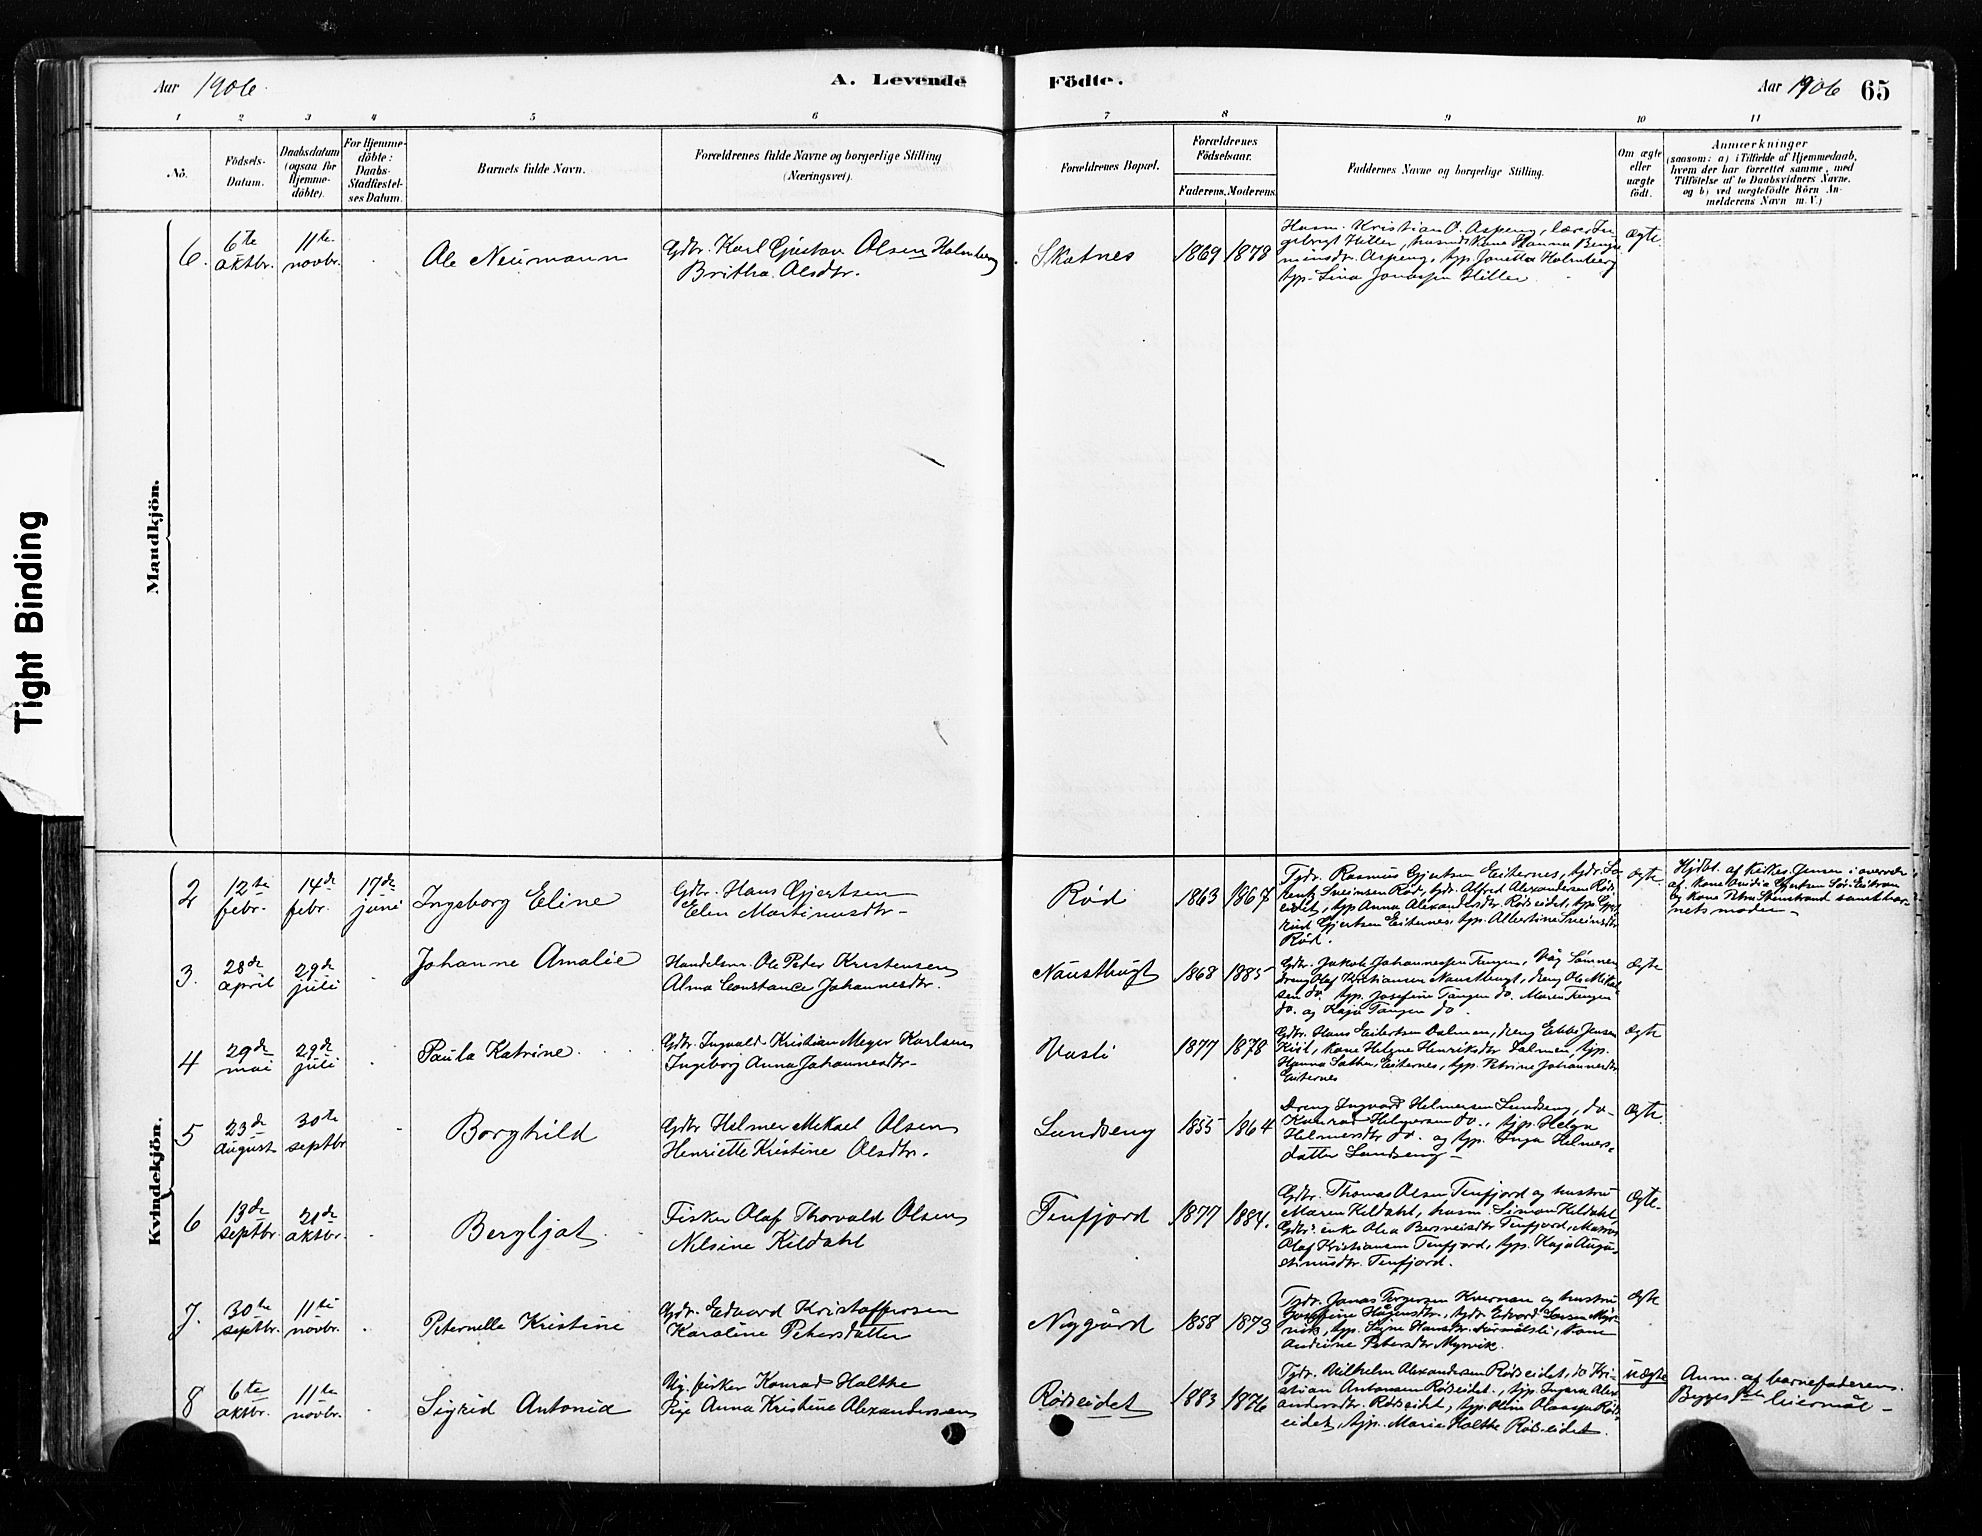 Tight Binding
Aar 1906.
A. Levende Födte.
Aar 1906 65
1 2 3 4 5 6 7 8 9 10 11
Nö.
Födsels-
Datum.
Daabsdatum
(ogsaa for
Hjemme-
döbte).
For Hjemme-
döbte:
Daabs-
Stadfæstel-
ses Datum.
Barnets fulde Navn.
Forældrenes fulde Navne og borgerlige Stilling
(Næringsvei).
Forældrenes Bopæl.
Forældrenes
Födselsaar.
Faderens. Moderens.
Faddernes Navne og borgerlige Stilling.
Om ægte
eller
uægte
födt.
Anmærkninger
(saasom: a) i Tilfælde af Hjemmedaab,
hvem der har forrettet samme, med
Tilföielse af to Daabsvidners Navne,
og b) ved uægtefödte Börn An-
melderens Navn m. V.)
Mandkjön.
6.
6te
oktbr.
11te
novbr.
Ole Neumann
Gdbr. Karl Gjustav Olsen Holmberg
Britha Olsdtr.
Skatnes
1869 1878
Husm. Kristian O. Aspeng, lærer In-
gebrigt Hiller, husmds kone Hanna Benja-
minsdtr. Aspeng, tjp. Janetta Holmberg
tjp. Lina Jonassen Hiller
Ægte
Kvindekjön.
2
12te
febr.
14de
febr.
17de
juni
Ingeborg Eline
Gdbr. Hans Gjertsen
Elen Martinusdtr.
Röd
1863 1867
Tjdr. Rasmus Gjertsen Eiternes, tjdr. Lo-
rents Sveinsen Röd, tjdr. Alfred Alexandersen Röds-
eidet, tjp. Anna Alexandersdtr. Rödseidet, tjp.
Gjertsen Eiternes, tjp. Albertine Sveinsdtr
Röd.
Ægte
Hjdbt. af Jensen i overvær
af kone Gjertsen
og kone Petra Stenstrand samt bar-
nets moder
3.
28de
april
29de
juli
Johanne Amalie
Handelsm. Ole Peder Kristensen
Alma Constance Johannesdtr.
Nausthugt
1868 1885
Gdbr. Jakob Johannessen Tangen,
dreng Olaf Kristiansen Nausthugt, dreng Ole Mikal-
sen do. tjp. Josefine Tangen do. Maren Tangen
do. og Kaja Tangen do.
Ægte
4
29de
mai
29de
juli
Paula Katrine
Gdbr. Ingvald Kristian Meyer Karlsen
Ingeborg Anna Johannesdtr.
Vasli
1877 1878
Gdbr. Hans Eilertsen Dalmen, dreng Ebbe Jensen
Kiil, kone Helene Henriksdtr Dalmen, tjp.
Hanna Eiternes, tjp. Petrine Johannesdtr
Eiternes
Ægte
5
23de
august
30te
septbr
Borghild
Gdbr Helmer Mikael Olsen
Henriette Kristine Olsdtr.
Lundseng
1855 1864
Dreng Ingvard Helmersen Lundseng, do-
Konrad Helmersen do., tjp. Helga
Helmersdtr do. og tjp. Inga Helmers-
datter Lundseng
Ægte
6
13de
septbr.
21de
oktbr.
Bergljot
Fisker Olaf Thorvald Olsen
Nilsine Kildahl
Tenfjord
1877 1884.
Gdbr. Thomas Olsen Tenfjord og hustru
Maren Kildahl, husm. Simon Kildahl,
Gdbr. enke Olea Tenfjord,
Olaf Kristiansen Tenfjord, tjp. Kaja Augu-
stinusdtr. Tenfjord.
Ægte
7.
30te
septbr.
11te
novbr.
Peternelle Kristine
Gdbr. Edvard Kristoffersen
Karoline Petersdatter
Nygård
1858 1873
Tjdr. Jonas Torgersen Kvernan og hustru
Josefine Hågensdtr., tjdr. Edvard
tjp. Signe Hansdtr. kone
Andrine Petersdtr Myrvik.
Ægte
8
6te
oktbr.
11te
novbr.
Sigrid Antonie
Ug. fisker Konrad Holthe
Pige Anna Kristine Alexandersen
Rödseidet
1883 1876
Tjdr. Vilhelm Alexandersen Rödseidet, do Kri-
stian Antonsen Rödseidet, tjp. Ingra Alex-
andersdtr. Rödseidet, tjp. Oline Olassen Röds-
eidet, tjp. Marie Holthe Rödseidet.
Uægte
Anm. af barnefaderen.
Begges leiermål